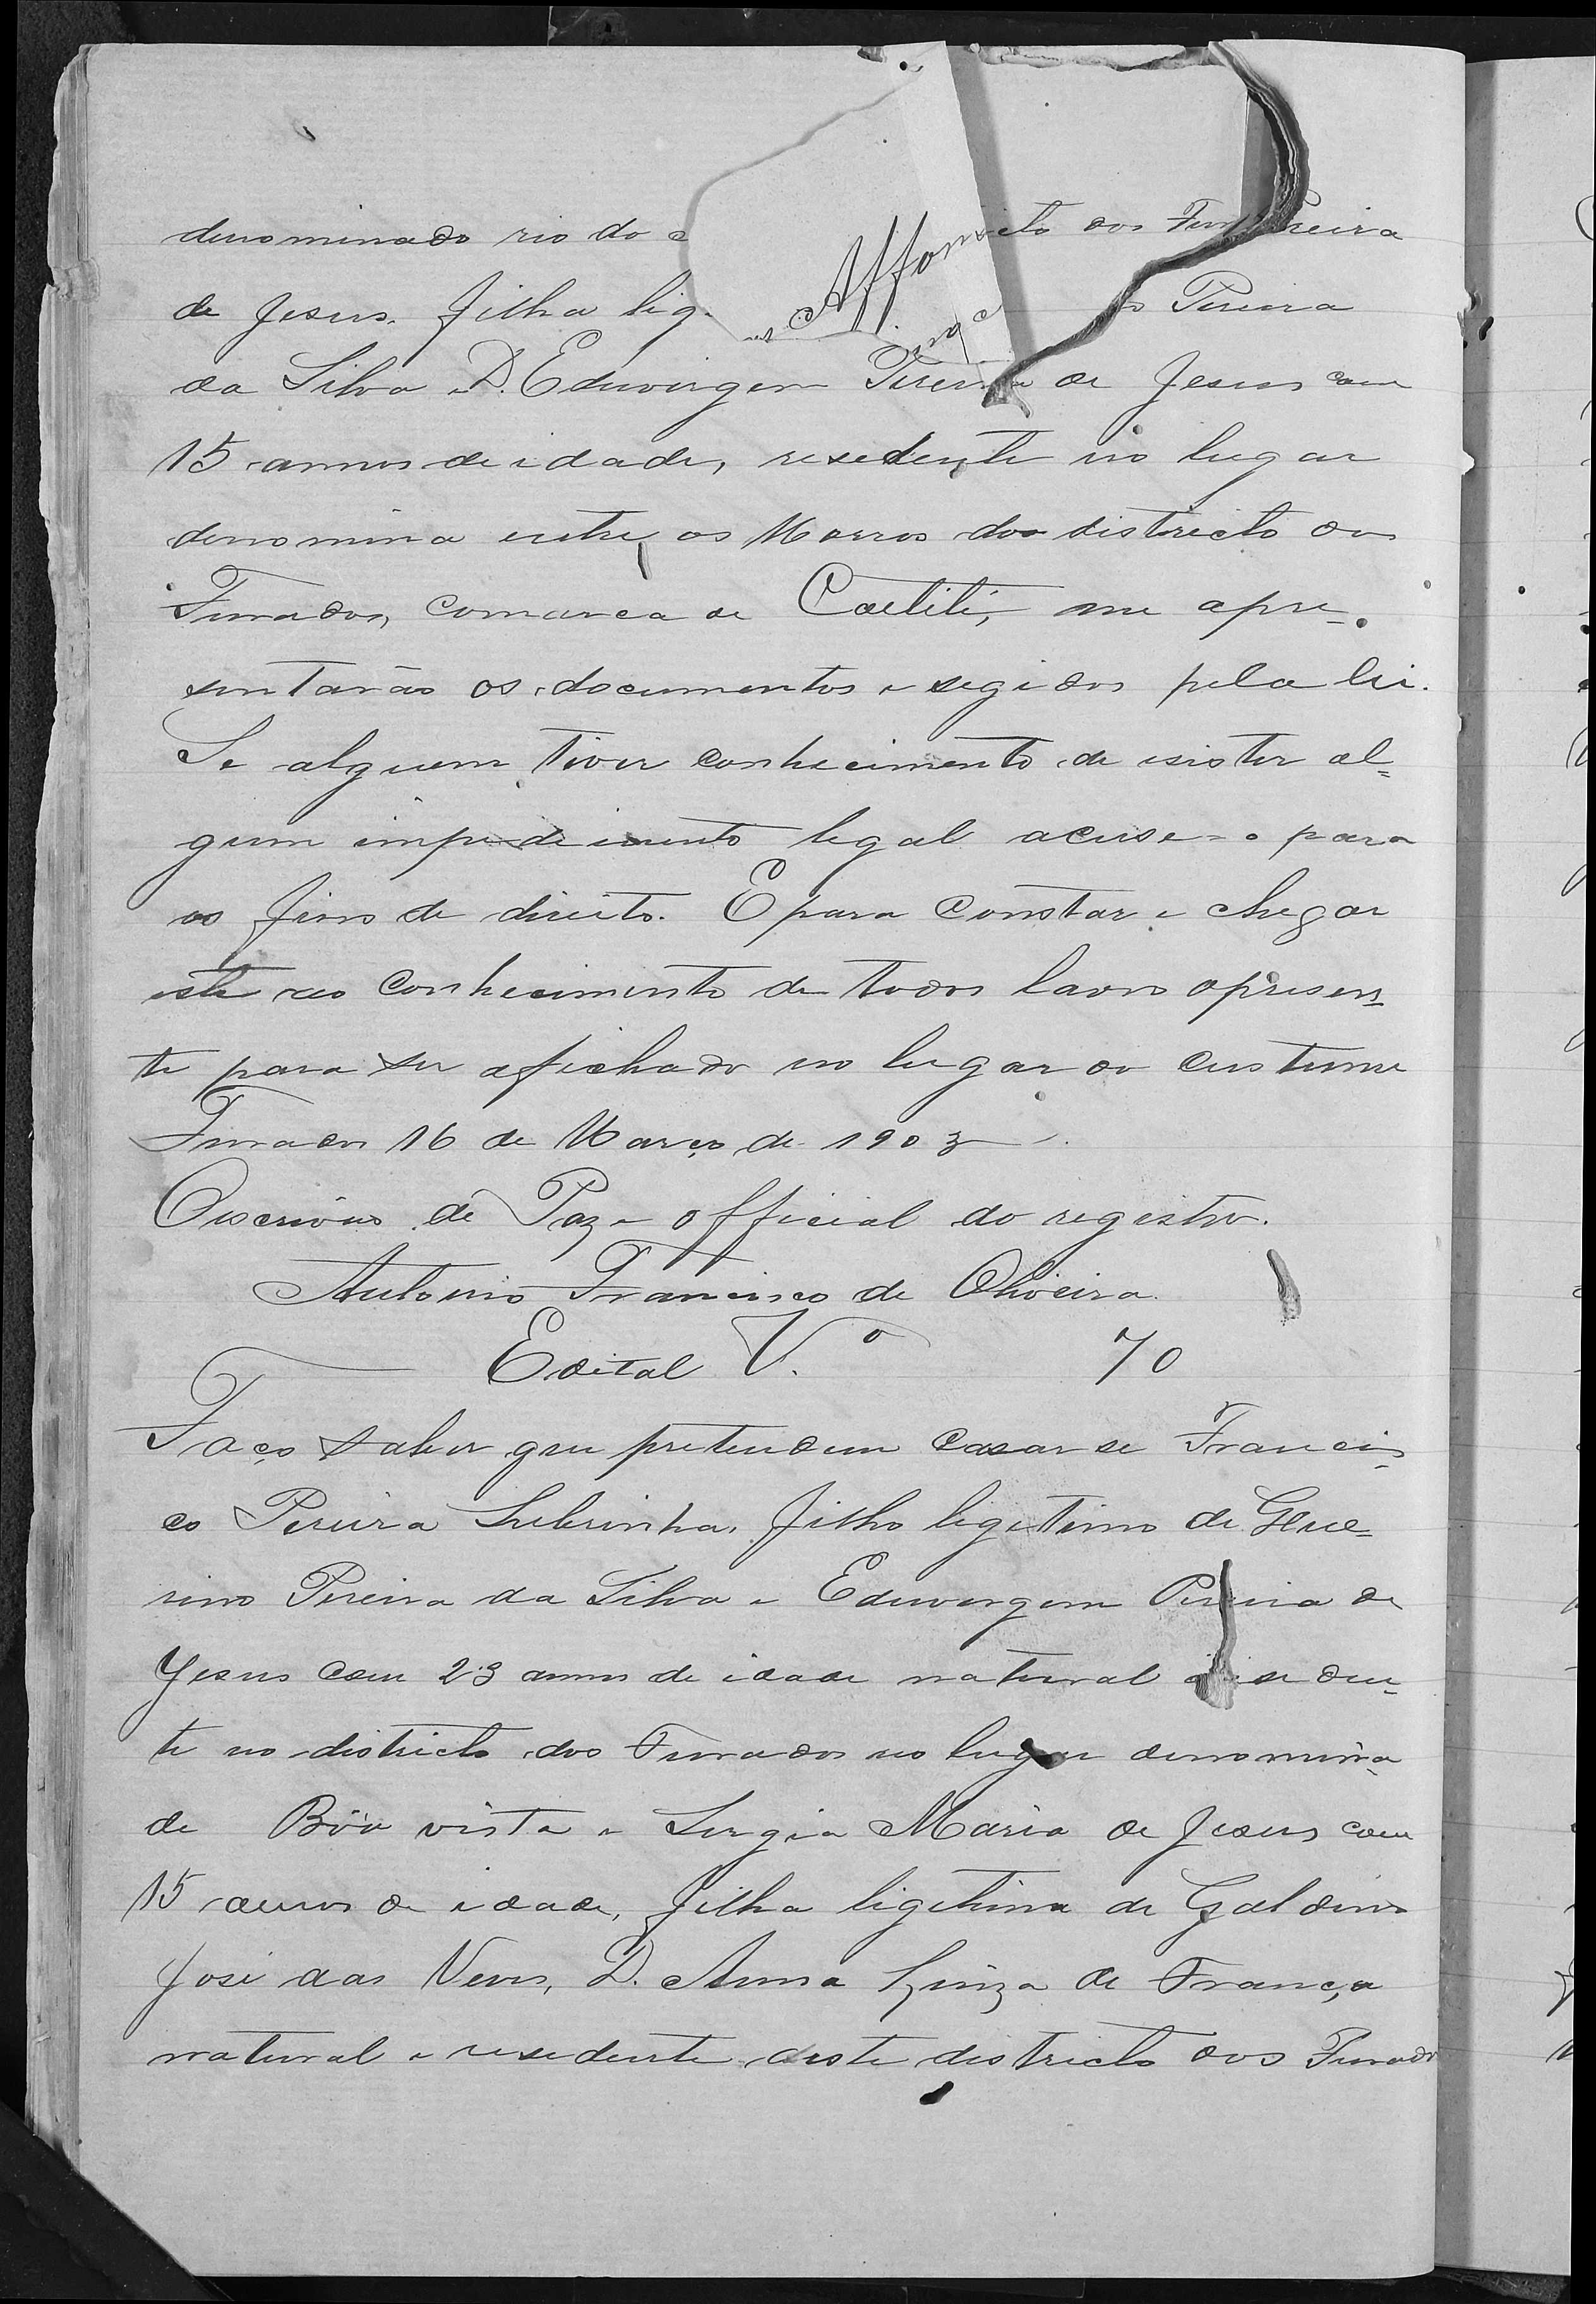 denominado rio do
Affon
icto dos Fur
reira
de Jesus. filha lig.
Pereira
da Silva e D. Eduvirgem Pereira de Jesus com
15 annos de idade, resedente no lugar
denomina entre os Morros dos districto dos
Furados, comarca de Caetité, me apre-
sentarão os documentos esegidos pela lei.
Se alguem tiver conhecimento de esister al=
gum impedeimento legal acuse-o para
os fins de direito. E para constar e chegar
este ao conhecimento de todos lavro opresen=
te para ser afichado no lugar do custume
Furados 16 de Março de 1903
Oescrivão de Paz e official do registro.
Antonio Francisco de Oliveira.
Edital N.º 70
Faço saber que pretendem casar se Francis-
co Pereira Subrinho. filho ligetimo de Gue=
rino Pereira da Silva e Eduvergem Pereira de
Jesus com 23 annos de idade natural e reseden-
te no districto dos Furados no lugar denomina-
de Bôa vista e Sergia Maria de Jesus com
15 annos de idade, filha ligetima de Galdino
José das Neves, D. Anna de França
natural e resedente deste districto dos Furado